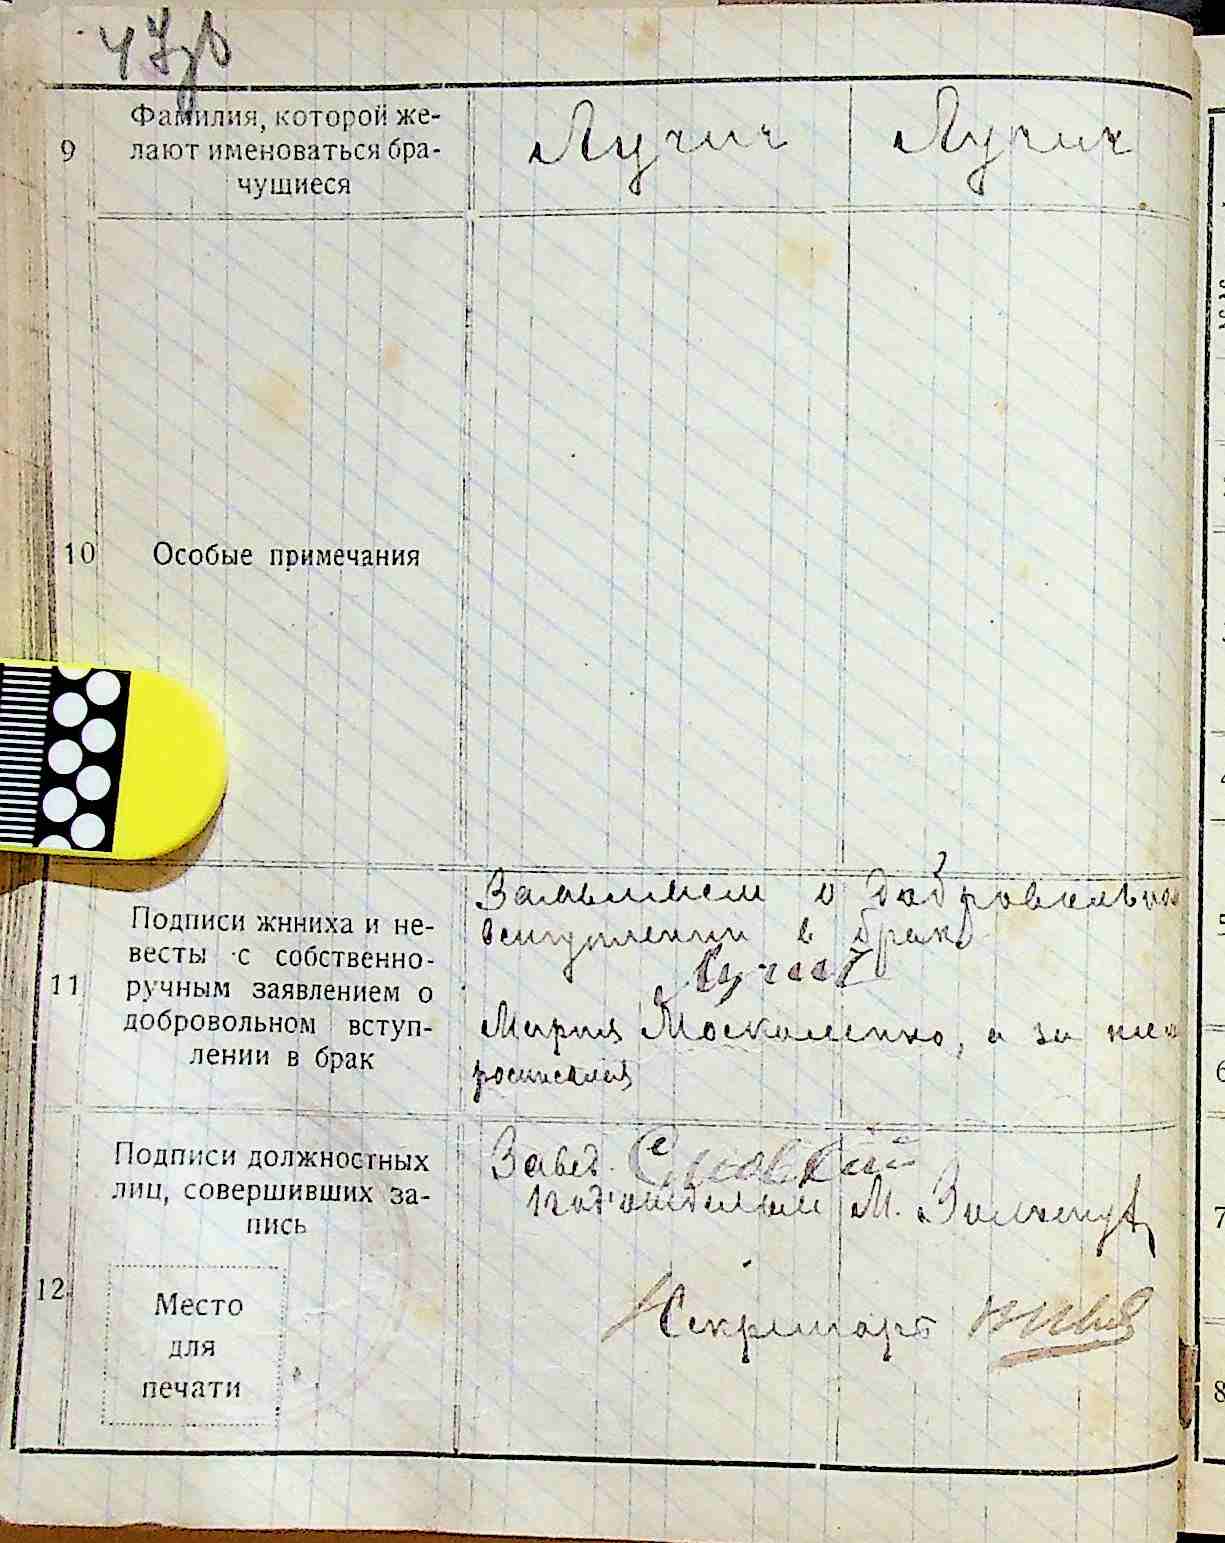 47об
9
Фамилия, которой же-
лают именоваться бра-
чущиеся
Лучич Лучич
10
Особые примечания
11
Подписи жнниха и не-
весты с собственно-
ручным заявлением о
добровольном вступ-
лении в брак
Заявляем о добровольном
вступлении в брак
Лучич
Мария Москаленко, а за нее
росписался
12
Подписи должностных
лиц, совершивших за-
пись
Завед.
Под'отделом М.
Секретарь
Место
для
печати
5
6
7
8